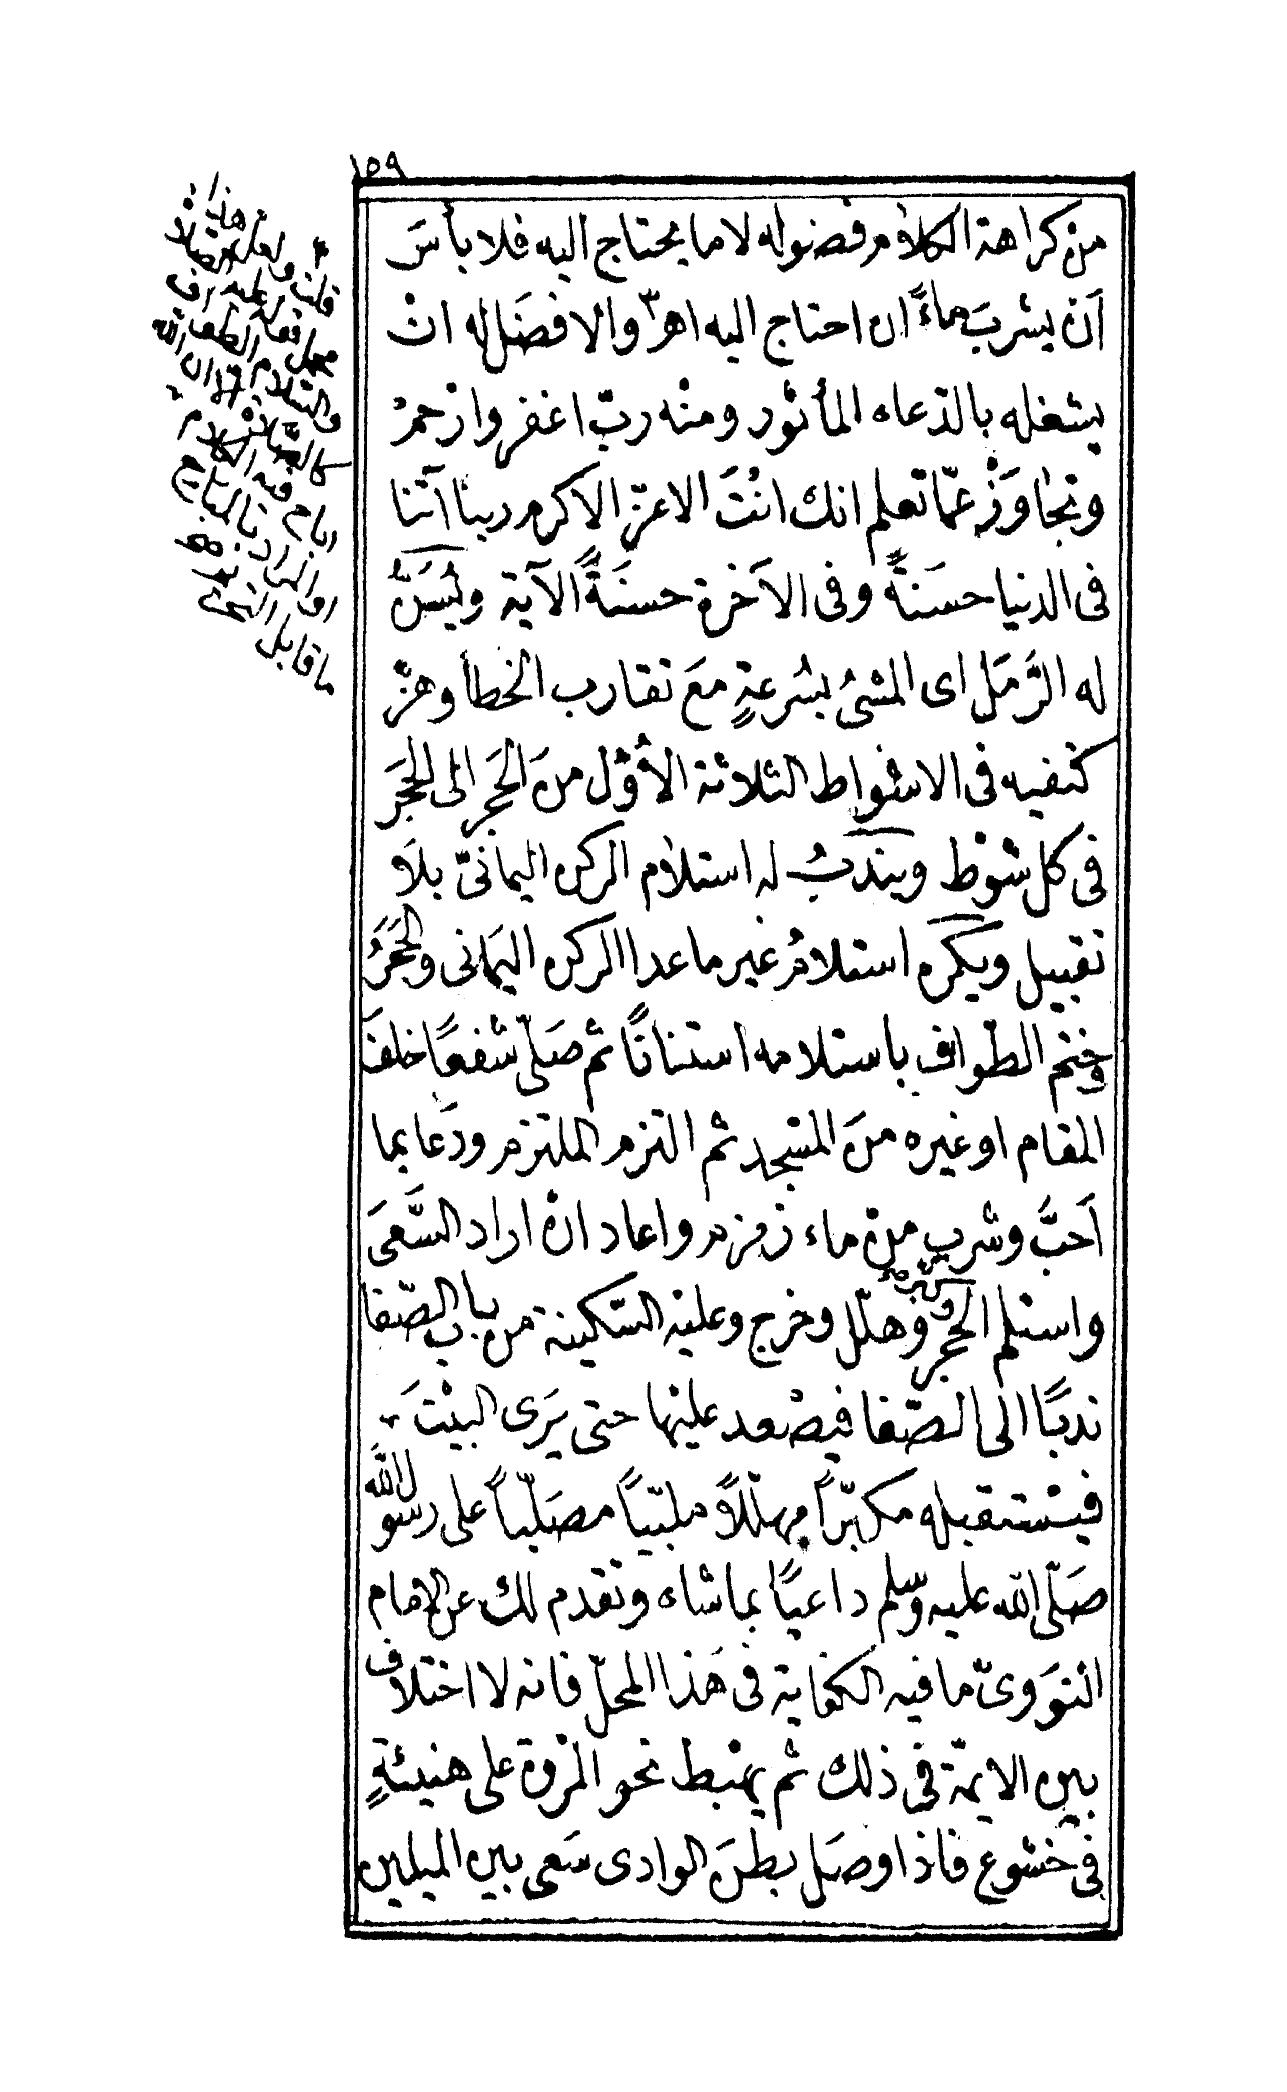 ١٥٩
من كراهة الكلام فضوله لا ما يحتاج اليه فلا بأسَ
اَن يشربَ ماءً ان احتاج اليه اهـ والافضَل له انْ
يشغله بالدعاء المأثور ومنْه ربّ اغفر وارْحمْ
وتجاوَزْ عمّا تعلم انك انْتَ الاعزّ الاكرم ربنا آتنا
فى الدنيا حسَنةً وفى الآخرة حسنَةً الآية ويُسَنُّ
له الرَّمَل اى المشىُ بسُرعةٍ معَ تقارب الخطأ وهزّ
كتفيه فى الاشواط الثلاثة الأُوَل منَ الحَجَر الى الحجَر
فى كل شوْط ويندَبُ له استلام الركن اليمانىّ بلَا
تقبيل ويكره استلامُ غير ما عدا الركن اليمَانى والحَجَرُ
وختم الطّواف باستلامه استنانًا ثم صَلّى شفعًا خلفَ
المقام او غيره منَ المسْجد ثم التزم الملتزم ودَعا بما
اَحبَّ وشرب منْ ماء زمزم واعاد انْ اراد السَّعىَ
واستلم الحَجر وكبر وهلّل وخرج وعليْه السّكينة من باب الصّفا
ندبًا الى الصّفا فيصْعد عليْها حتى يَرَى البيْتَ
فيسْتقبله مكبّراً مهلّلاً ملبّيًا مصَلّيًا على رسول الله
صَلّى الله عليه وسلم داعيًا بما شاء وتقدم لك عن الامام
النوَوىّ ما فيه الكفاية فى هَذا المحلّ فانه لا اختلاف
بين الايمّة فى ذلك ثم يهْبط نحو المرْوة على هنيئةٍ
فى خشوع فاذا وصَل بطنَ الوادى سَعى بين الميلين
قلت ولعل هذا
محمل قوله عليه الصلاة
والسّلام الطواف
كالصّلاة الا ان الله
اباح فيه الكلام
او المراد بالمباح
ما قابل